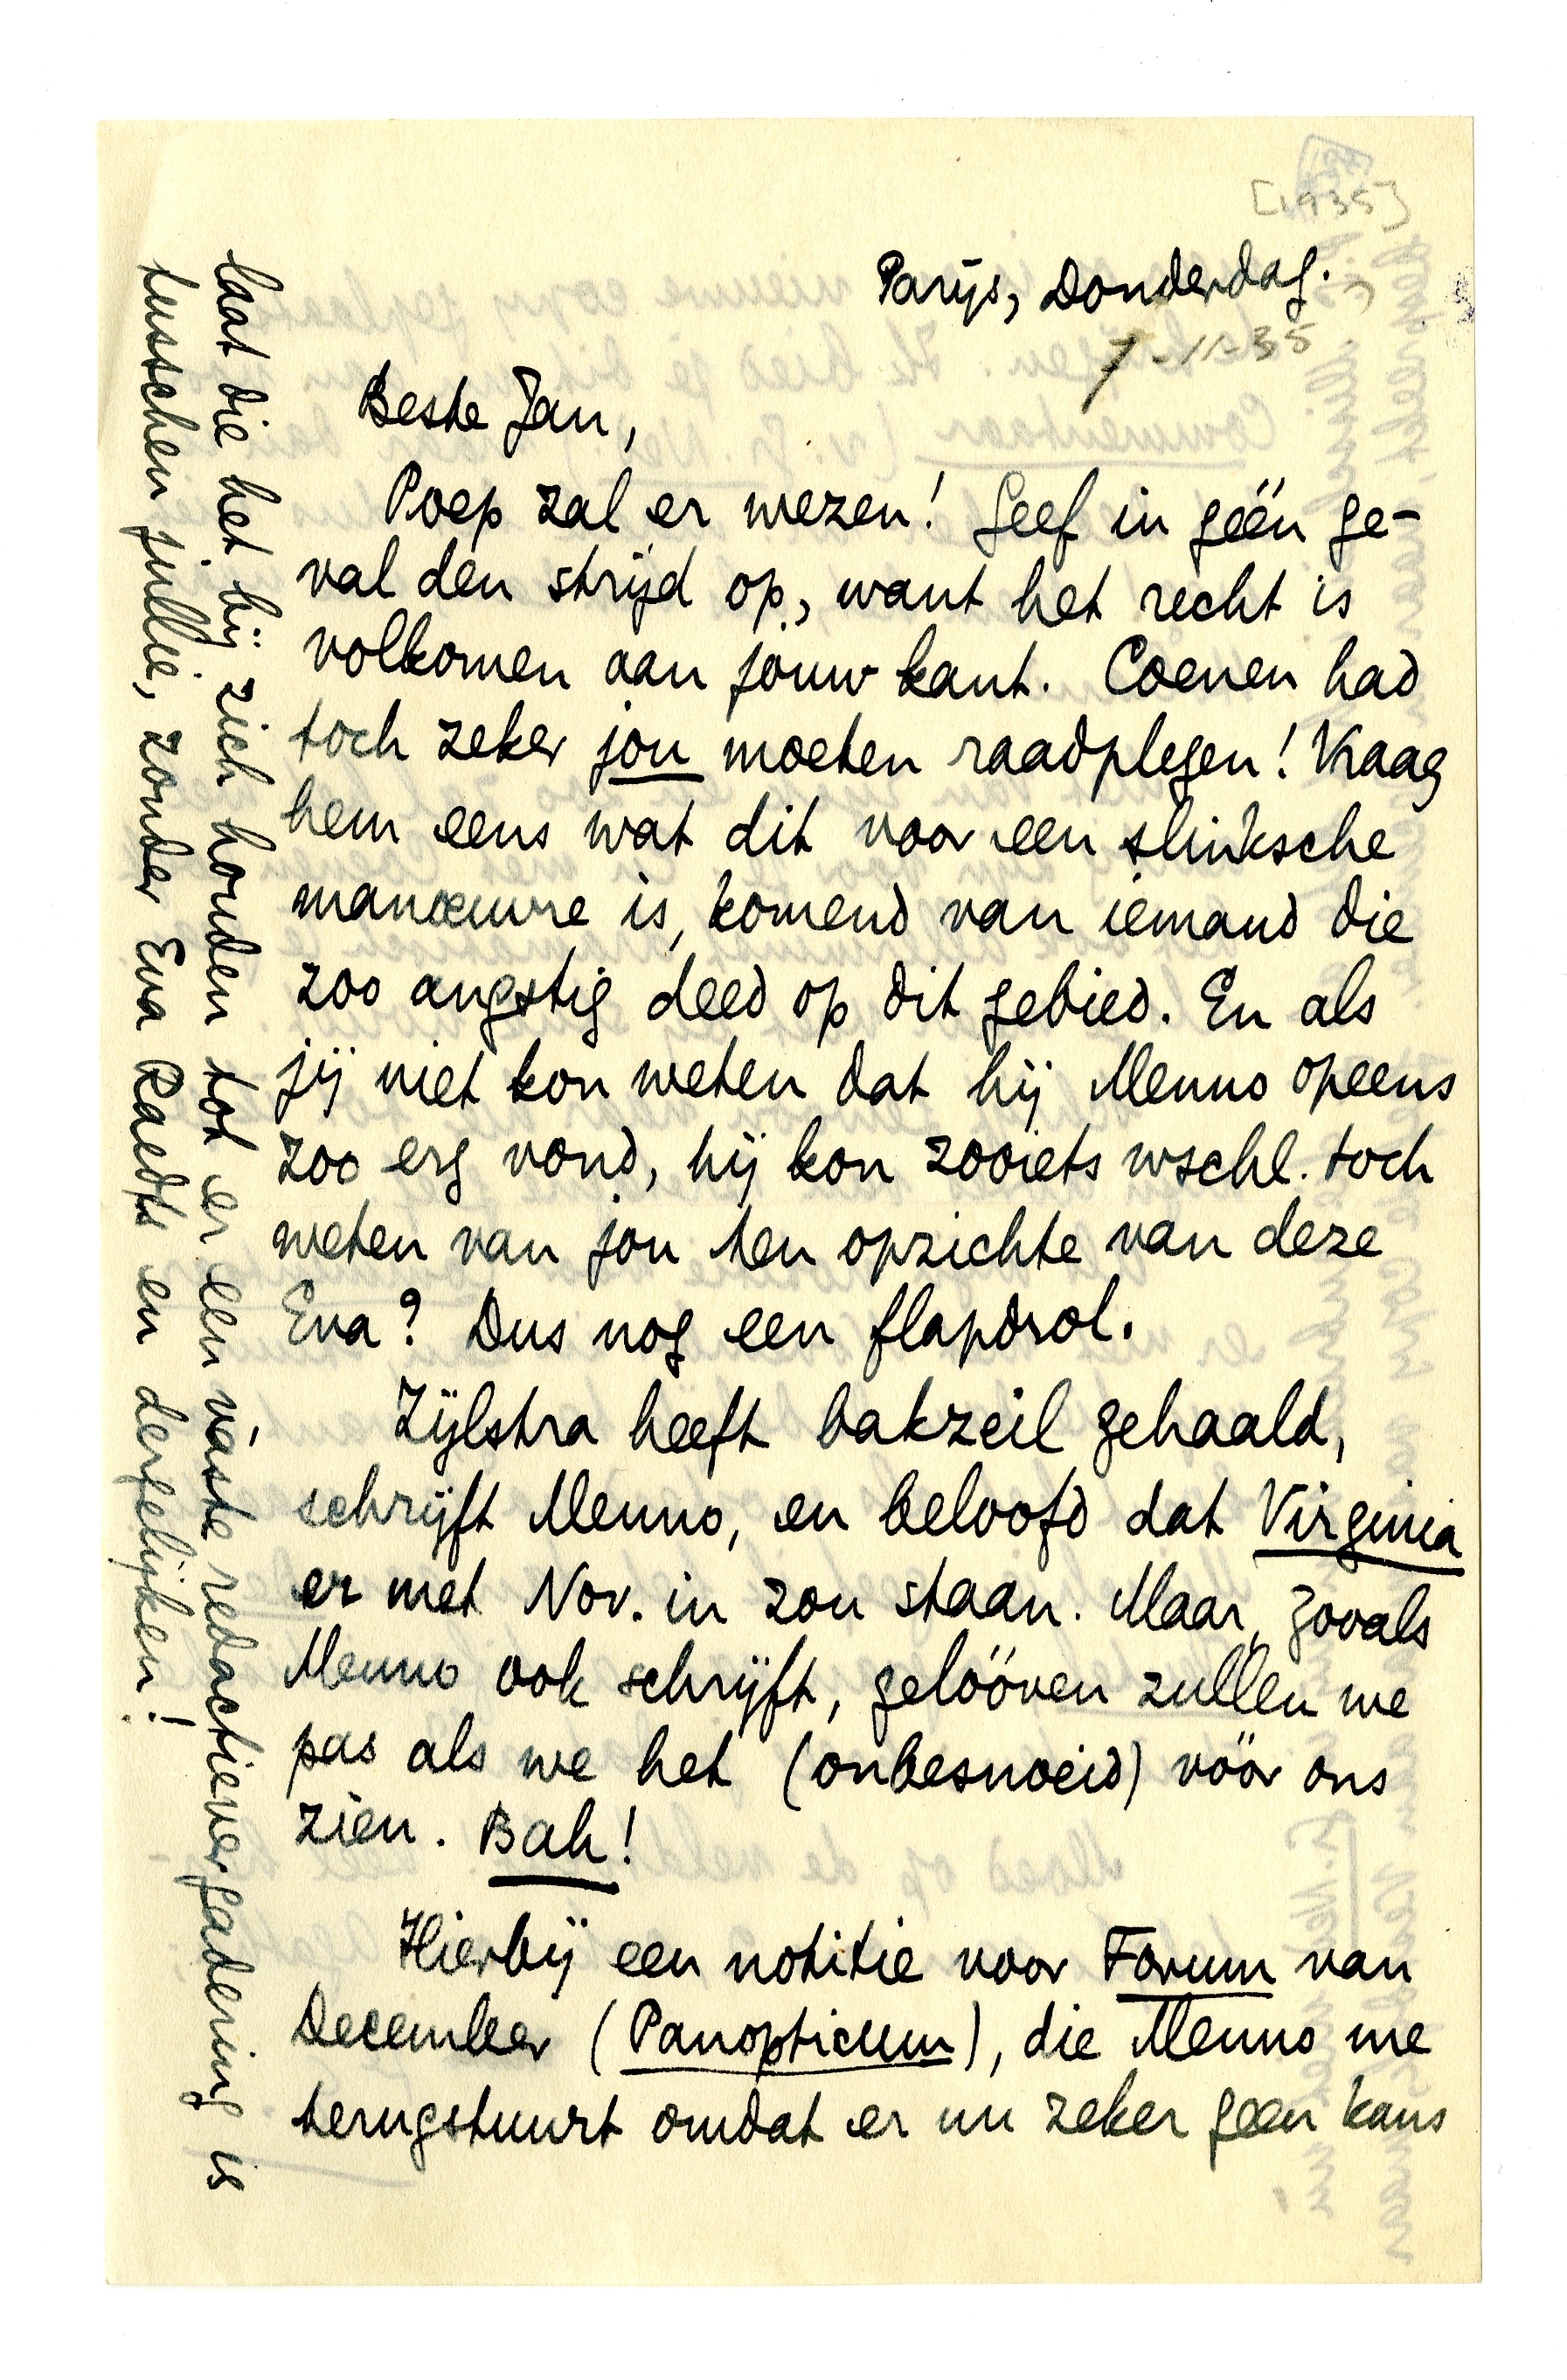 [1935]
Parijs, Donderdag.
7-11-35
Beste Jan,
Poep zal er wezen! Geef in géén ge-
val den strijd op, want het recht is
volkomen aan jouw kant. Coenen had
toch zeker jou moeten raadplegen! Vraag
hem eens wat dit voor een slinksche
manoeuvre is, komend van iemand die
zoo angstig deed op dit gebied. En als
jij niet kon weten dat hij Menno opeens
zoo erg vond, hij kon zooiets wschl. toch
weten van jou ten opzichte van deze
Eva? Dus nog een flapdrol.
Zijlstra heeft bakzeil gehaald,
schrijft Menno, en beloofd dat Virginia
er met Nov. in zou staan. Maar, zooals
Menno ook schrijft, gelóóven zullen we
pas als we het (onbesnoeid) vóór ons
zien. Bah!
Hierbij een notitie voor Forum van
December (Panopticum), die Menno me
terugstuurt omdat er nu zeker geen kans
laat die het bij zich houden tot er een váste redactievergadering is
tusschen jullie, zonder Eva Raedts en dergelijken!